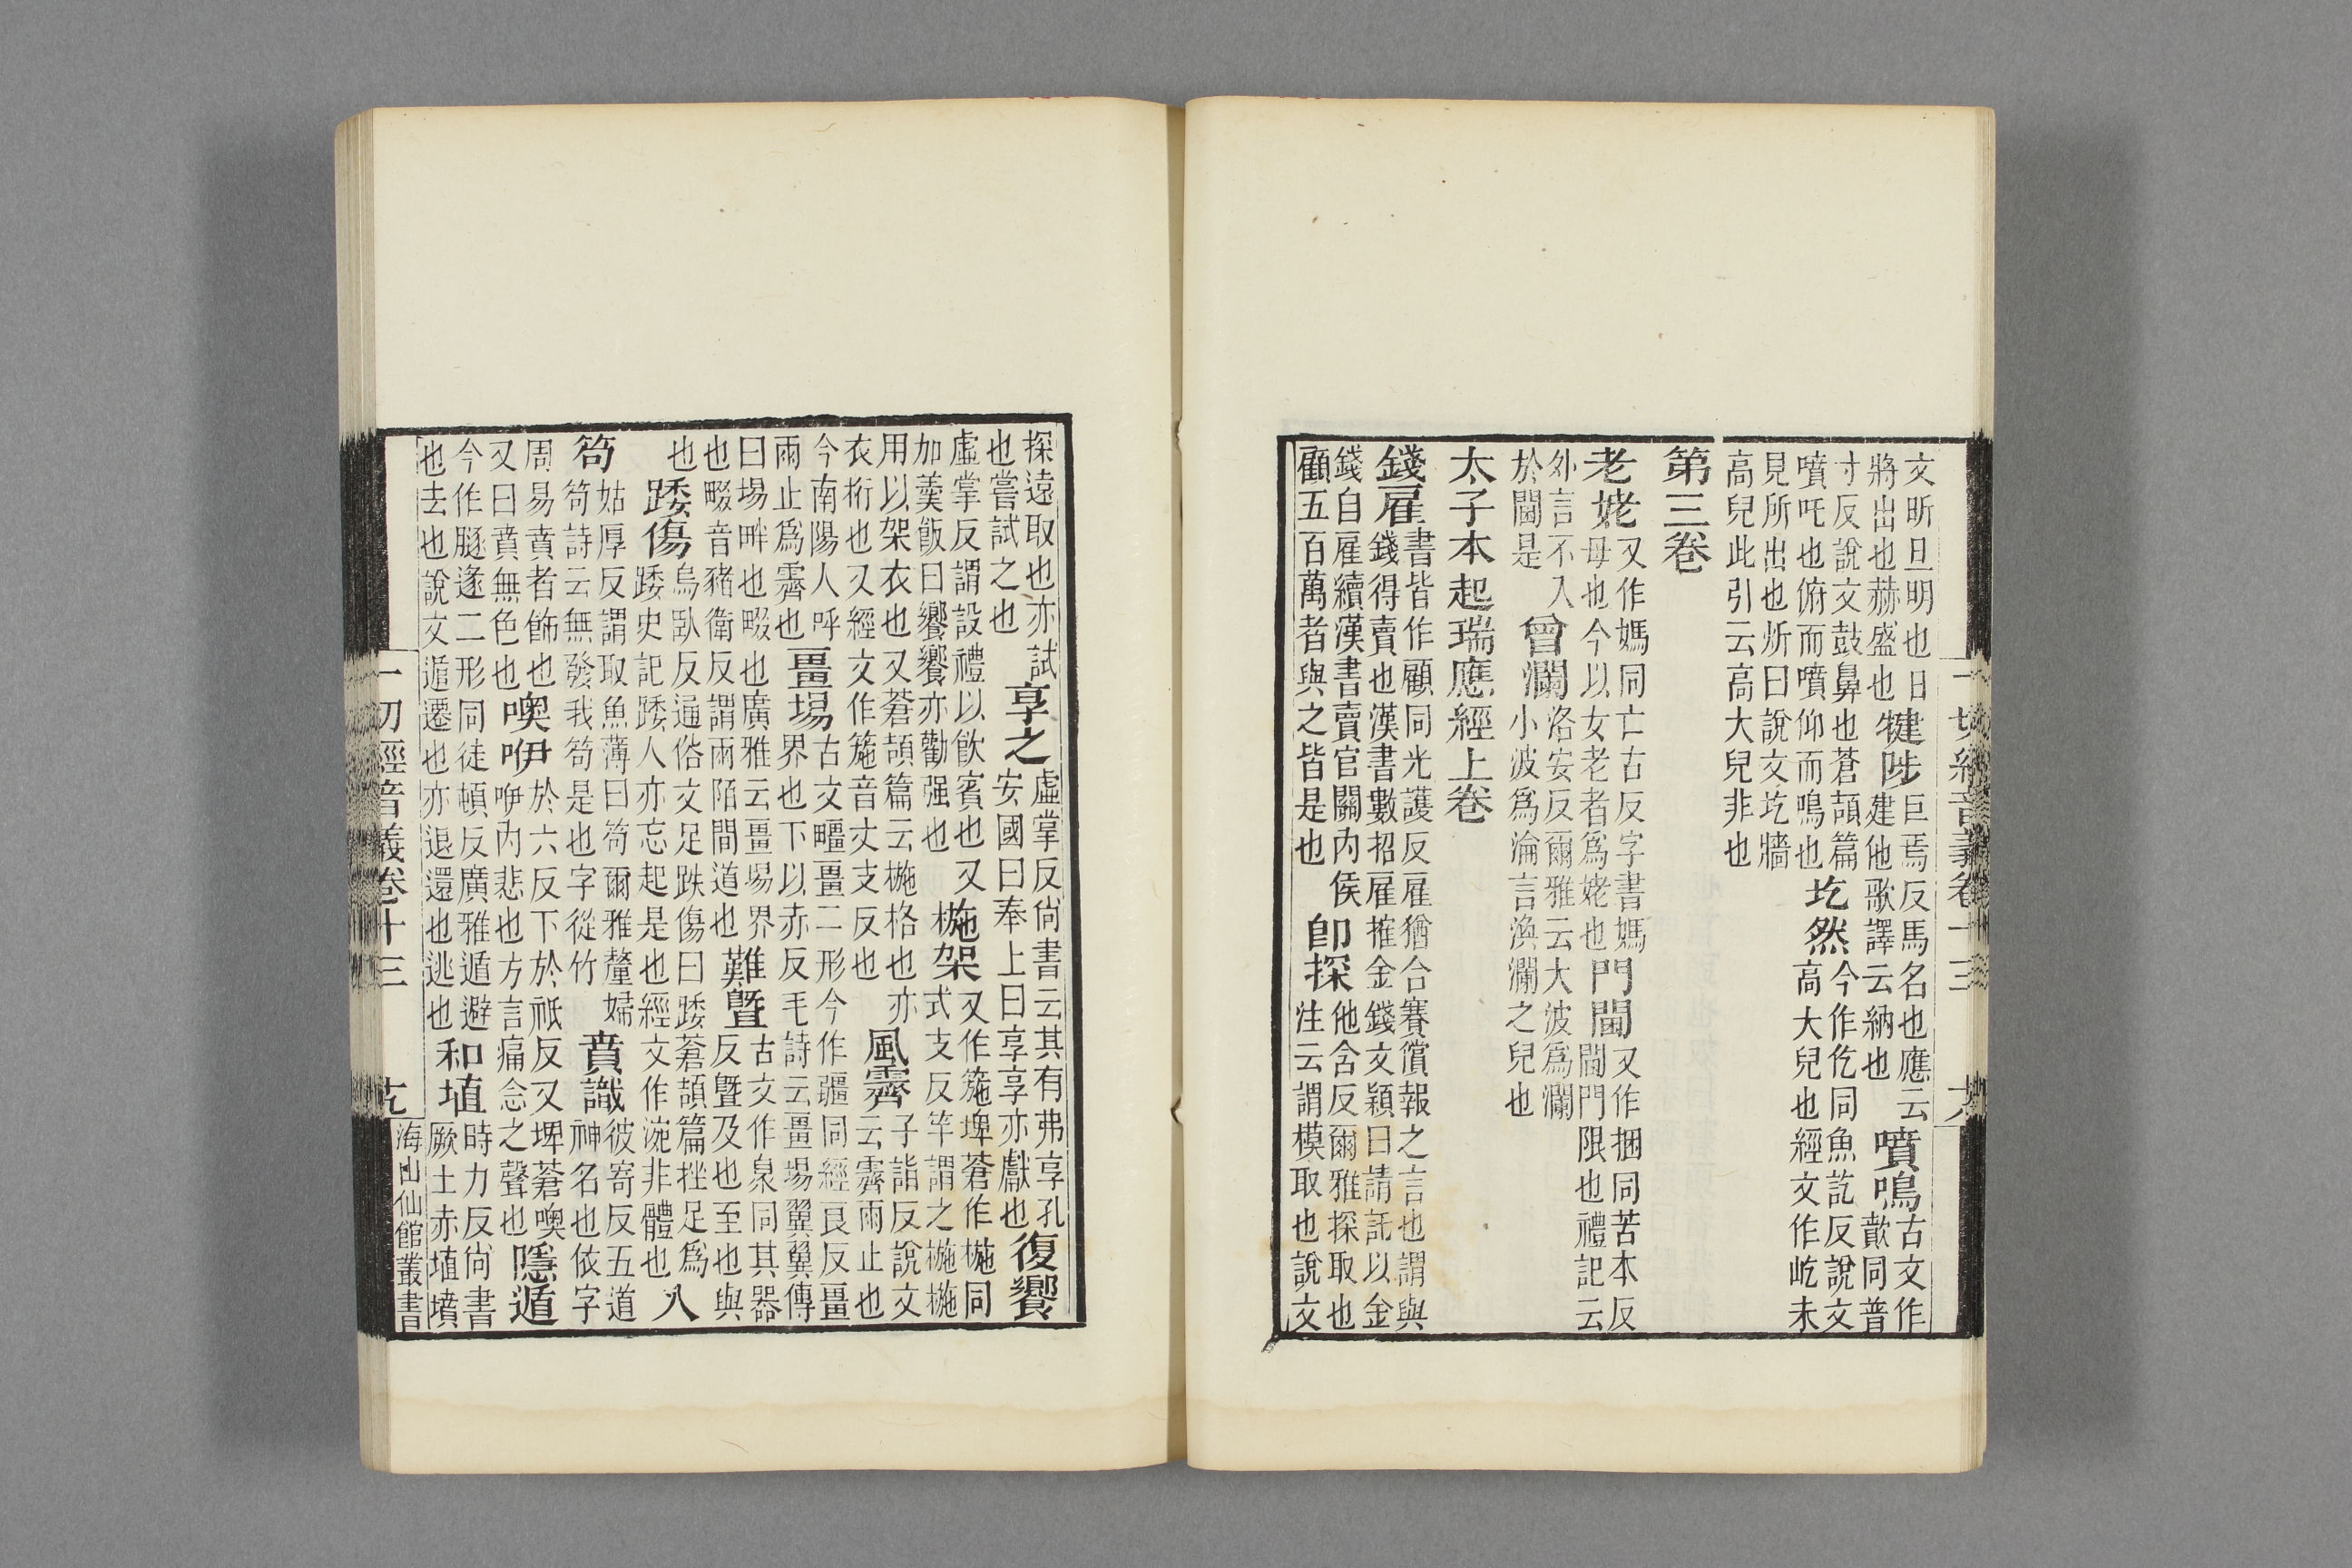 一切經音義卷十三 六
文昕旦明也日將出也赫盛也犍陟巨焉反馬名也應云建他歌譯云納也噴鳴古文作歕同普
寸反說文鼓鼻也蒼頡篇噴吒也俯而噴仰而鳴也圪然今作仡同魚訖反說文高大皃也經文作屹未
見所出也炘曰說文圪牆高皃此引云高大皃非也
第三卷
老姥又作媽同亡古反字書媽母也今以女老者爲姥也門閫又作捆同苦本反閫門門限也禮記云
外言不入於閫是曾瀾洛安反爾雅云大波爲瀾小波爲淪言渙瀾之皃也
太子本起瑞應經上卷
錢雇書皆作顧同光護反雇猶合賽償報之言也謂與錢得賣也漢書數招雇搉金錢文穎曰請託以金
錢自雇續漢書賣官關內侯顧五百萬者與之皆是也卽探他含反爾雅探取也注云謂模取也說文
探遠取也亦試也嘗試之也享之虛掌反尙書云其有弗享孔安國曰奉上曰享享亦獻也復饗
虛掌反謂設禮以飮賓也又加羹飯曰饗饗亦勸强也椸架又作箷埤蒼作椸同式支反竿謂之椸椸
用以架衣也又蒼頡篇云椸格也亦衣桁也又經文作箷音丈支反也風霽子詣反說文云霽雨止也
今南陽人呼雨止爲霽也畺埸古文疆畺二形今作疆同經良反畺界也下以赤反毛詩云畺埸翼翼傳
曰埸畔也畷也廣雅云畺埸界也畷音猪衛反謂兩陌間道也難曁古文作臮同其器反曁及也至也與
也踒傷烏臥反通俗文足跌傷曰踒蒼頡篇挫足爲踒史記踒人亦忘起是也經文作涴非體也入
笱姑厚反謂取魚薄曰笱爾雅釐婦笱詩云無發我笱是也字從竹賁識彼寄反五道神名也依字
周易賁者飾也又曰賁無色也噢咿於六反下於祇反又埤蒼噢咿內悲也方言痛念之聲也隱遁
今作腞遂二形同徒頓反廣雅遁避也去也說文遁遷也亦退還也逃也和埴時力反尙書厥土赤埴墳
一切經音義卷十三 九 海山仙館叢書